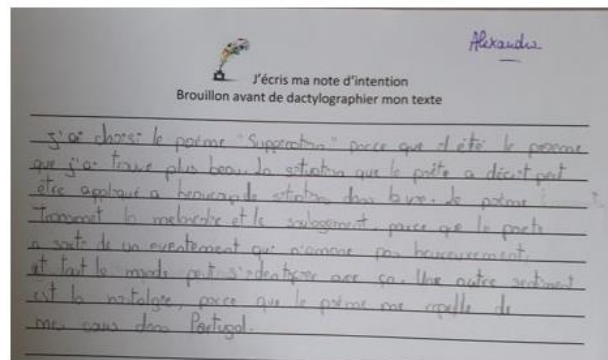 Alexandra
J'écris ma note d'intention
Brouillon avant de dactylographier mon texte
j'ai choisi le poème "Supperation" parce que d'été le poeme
que j'ai trouvé plus beau. La situation que le poète a décrit peut
être appliqué a beaucoup de situation dans la vie. Le poème
transmet la melancolie et le soulagement, parce que le poete
a sorti de un eventement qui n'amane pas heureurement,
et tout le monde peut s'identifier avec ça. Une autre sentiment
est la nostalgie, parce que le poème me rapelle de
mes dans Portugal.